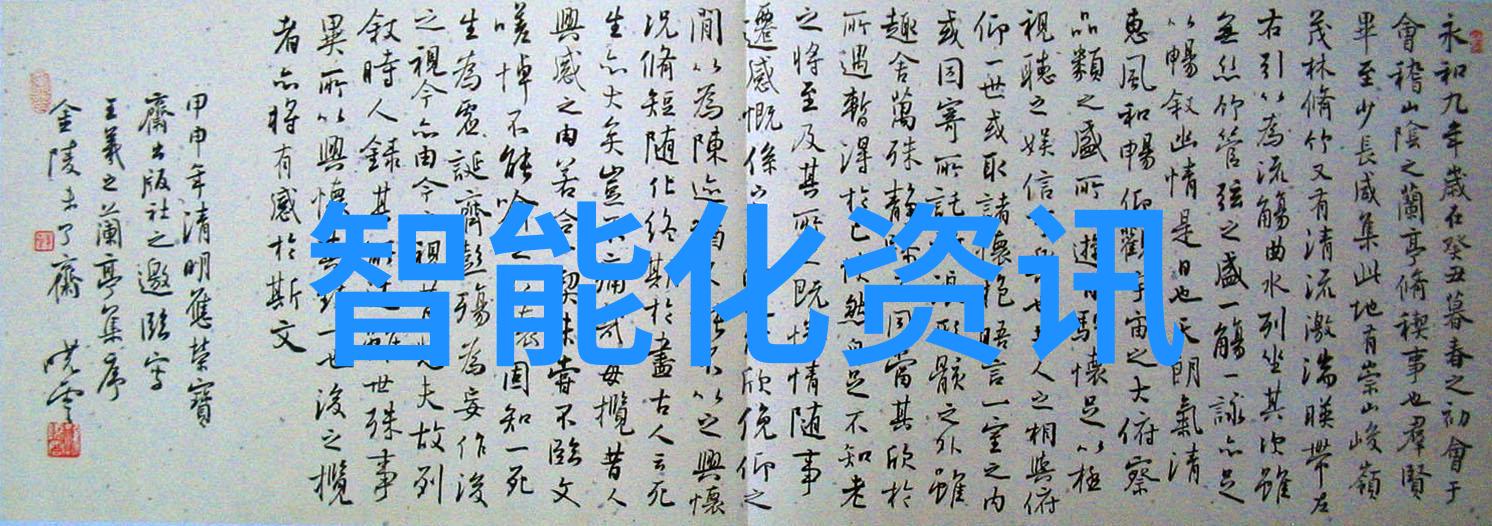 永和九年歲在癸丑暮春之初會于
會稽山陰之蘭亭脩稧事也羣賢
畢至少長咸集此地有崇山峻嶺
茂林脩竹又有清流激湍暎帶左
右引以為流觴曲水列坐其次雖
無絲竹管弦之盛一觴一詠亦足
以暢敘幽情是日也天朗氣清
惠風和暢仰觀宇宙之大俯察
品類之盛所遊目騁懷足以極
視聽之娛信也夫人之相與俯
仰一世或取諸懷抱晤言一室之内
或因寄所託浪形骸之外雖
趣舍萬殊静同當其欣於
所遇暫得於己怏然自足不知老
之將至及其所之既惓情随事
遷感慨係之欣俛仰之
間以為陳迹猶不以之興懷
況脩短随化終期於盡古人云死
生亦大矣豈不痛哉每攬昔人
興感之由若合契未嘗不臨文
嗟悼不能喻之懷固知一死
生為虛誕齊彭殤為妄作後
之視今亦由今之視昔夫故列
敘時人錄其所世殊事
異所以興懷其致一也後之攬
者亦將有感於斯文
甲申年清明應榮寶
齋出版社之邀臨寫
王羲之蘭亭集序
金陵未了齋
智能化资讯